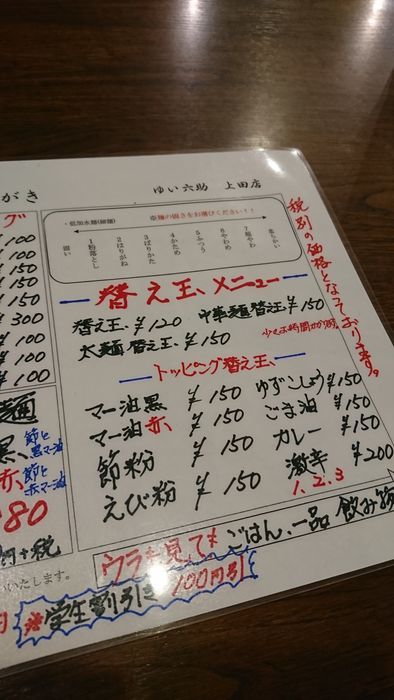 がき
ゆい六助 上田店
グ
¥100
¥100
¥150
¥150
¥300
¥100
¥100
¥100
麺
黒、節と黒マー油
赤、節と赤マー油
80
円+税
いたします。
・低加水麺(細麺)
※麺の固さをお選びください!!
固い
1 粉落とし
2 はりがね
3 ばりかた
4 かため
5 ふつう
6 やわめ
7 超やわ
柔らかい
税別の価格となっております。
替え玉、メニュー
替え玉、¥120 中華麺 替え玉 ¥150
太麺 替え玉、¥150
トッピング替え玉、
マー油黒 ¥150 ゆずこしょう ¥150
マー油赤、¥150 ごま油 ¥150
節粉 ¥150 カレー ¥150
えび粉 ¥150 激辛 ¥200
1.2.3
ウラも見て ごはん、一品 飲み物
※学生割引き 100円引